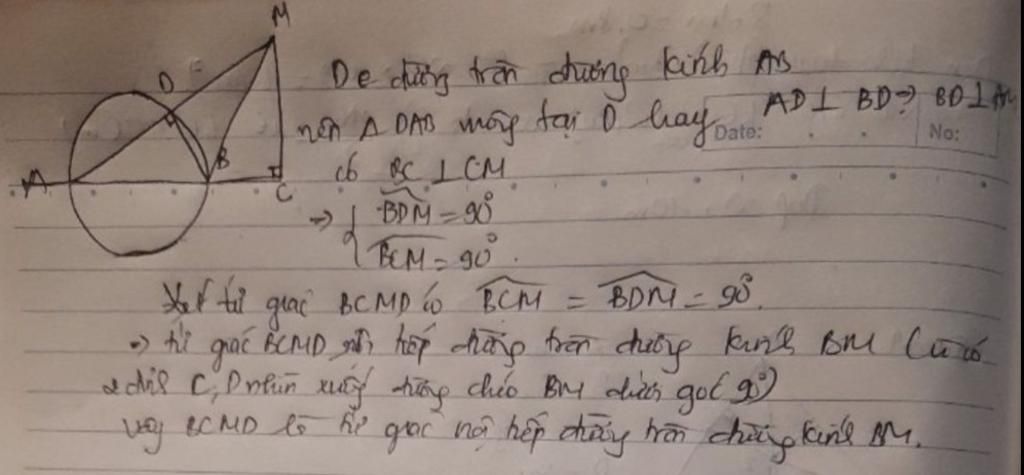 M
D
B
A
C
D e đường tròn đường kính AB
nên Δ DAB vuông tại D hay AD ⊥ BD => BD ⊥
Date: No:
có BC ⊥ CM
=> { BDM = 90°
BCM = 90°.
Xét tứ giác BCMD có BCM = BDM = 90°.
=> tứ giác BCMD nội tiếp đường tròn đường kính BM (vì có
2 đỉnh C, D nhìn xuống đường chéo BM dưới góc 90°)
Vậy BCMD là tứ giác nội tiếp đường tròn đường kính BM.